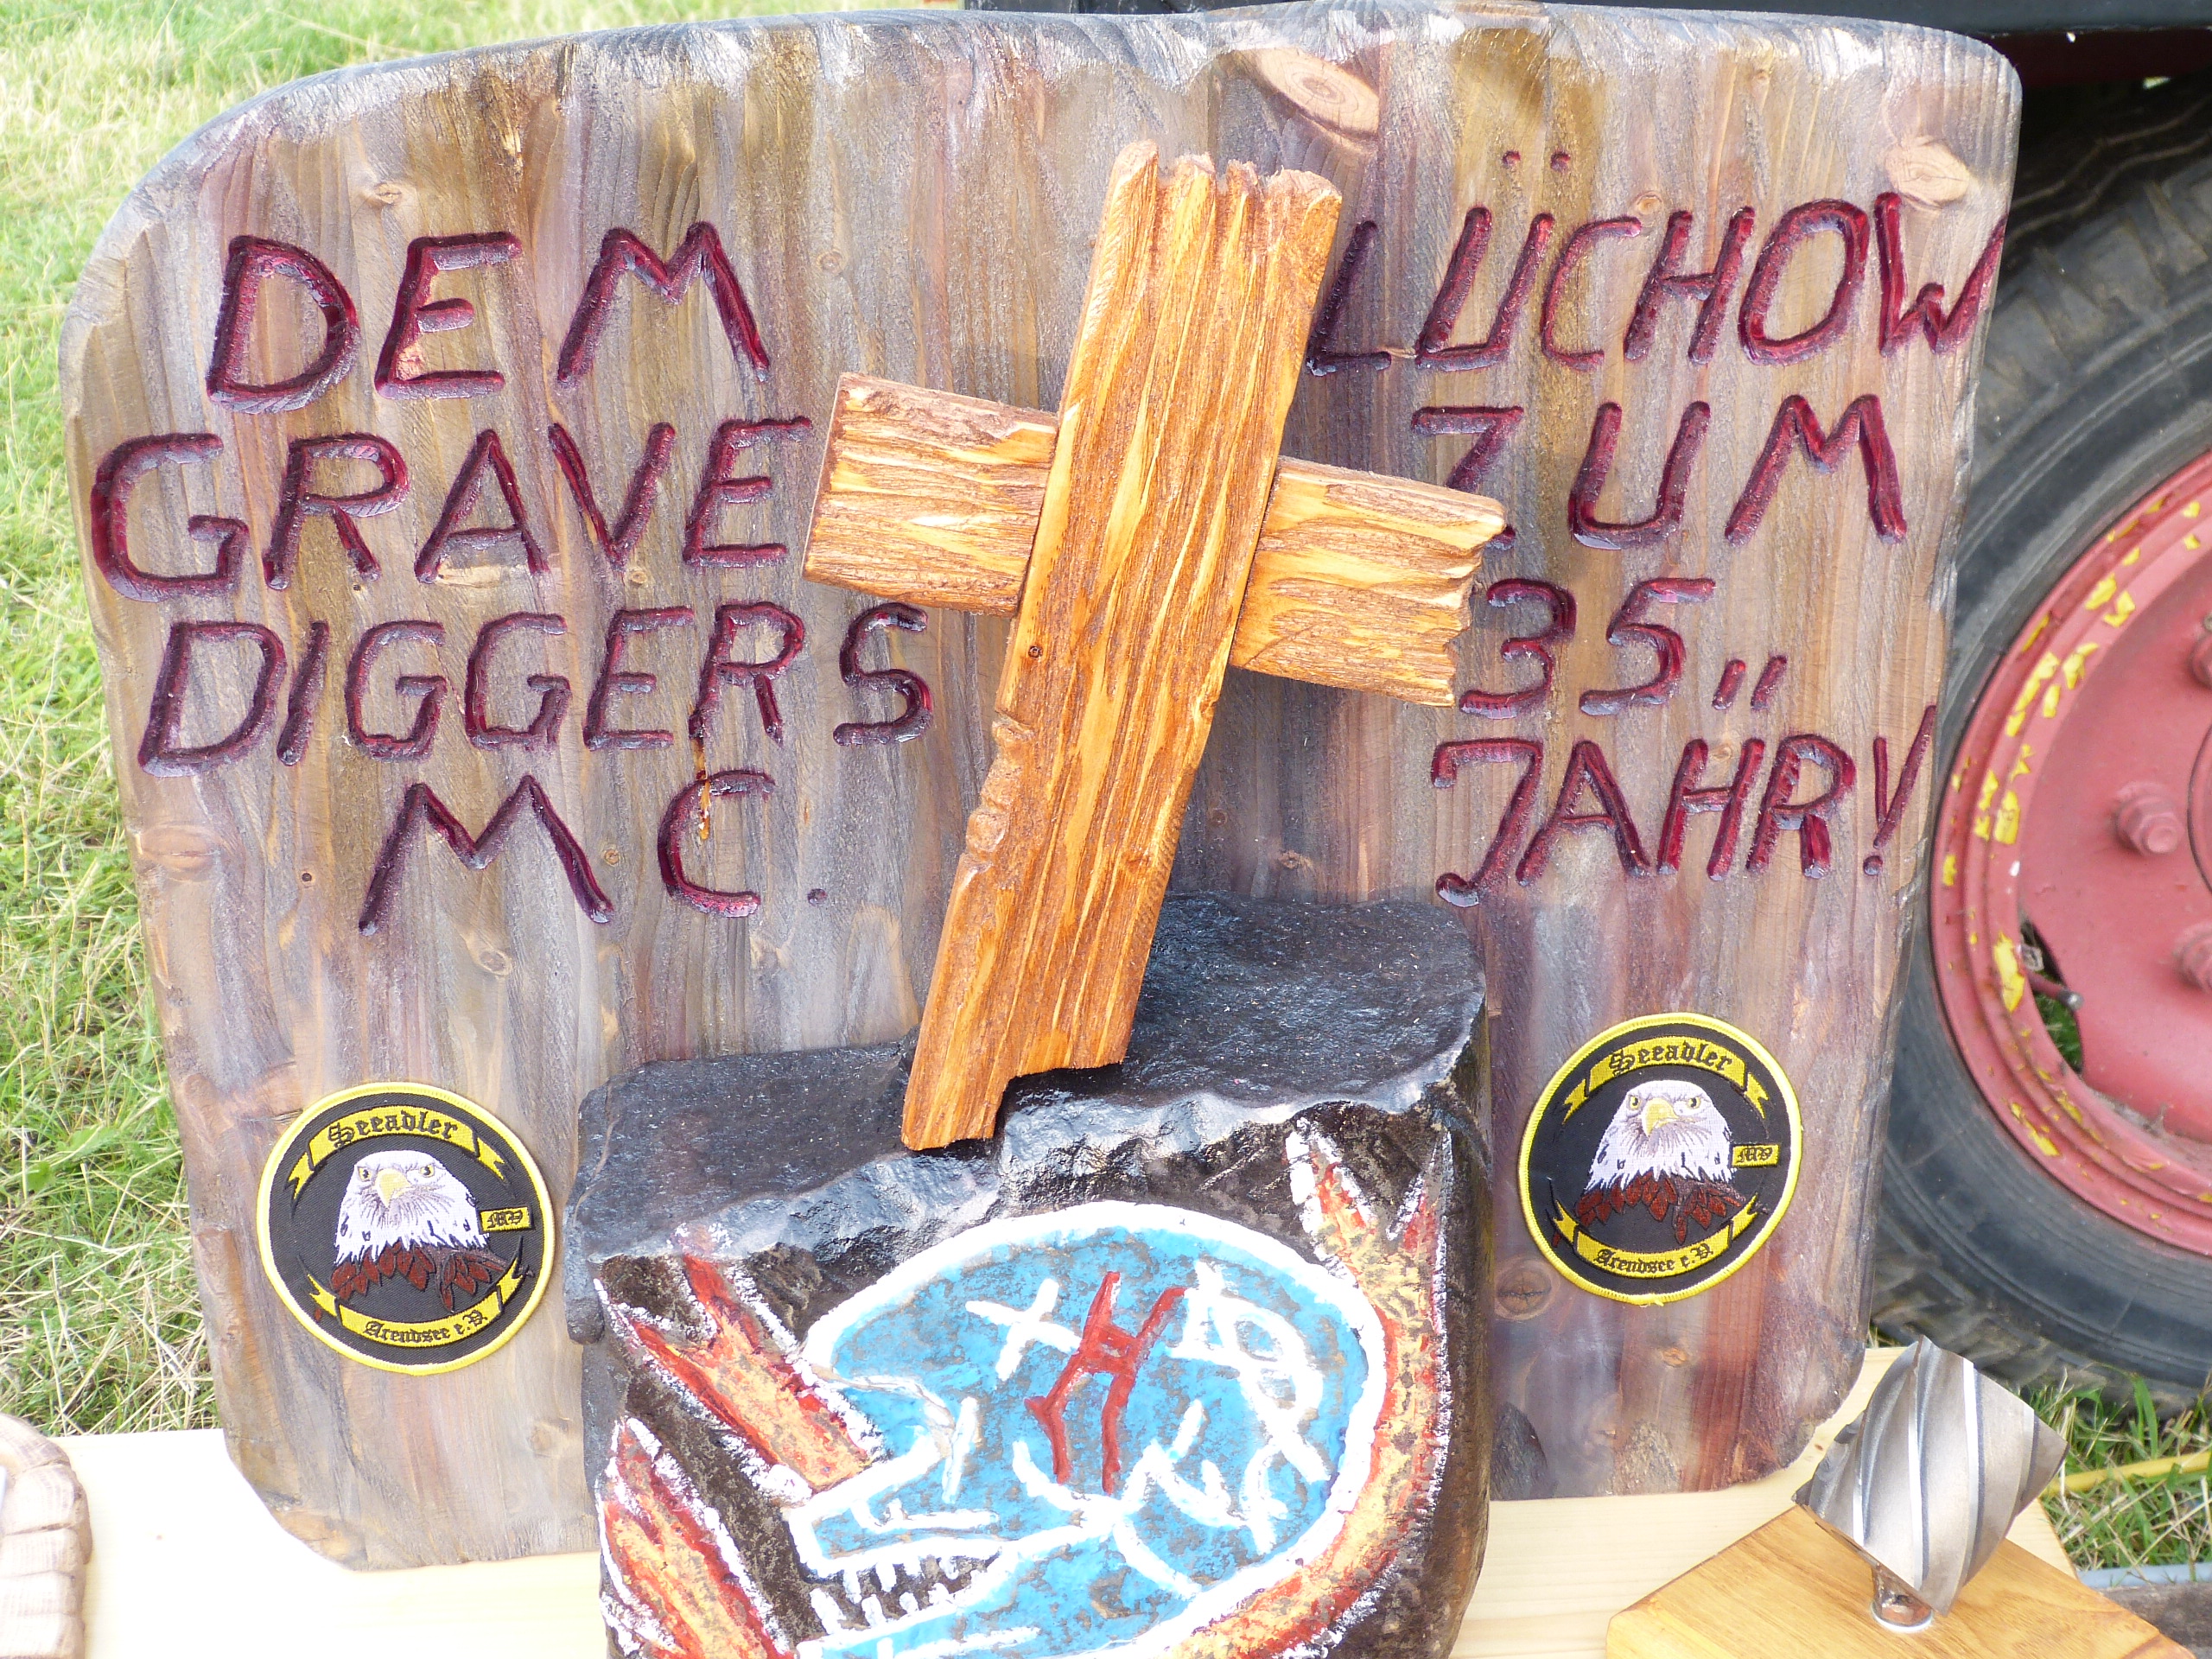 DEM
GRAVE
DIGGERS
MC.
LÜCHOW
ZUM
35,,
JAHR!
Seeadler
MV
Arendsee e.V.
Seeadler
MV
Arendsee e.V.